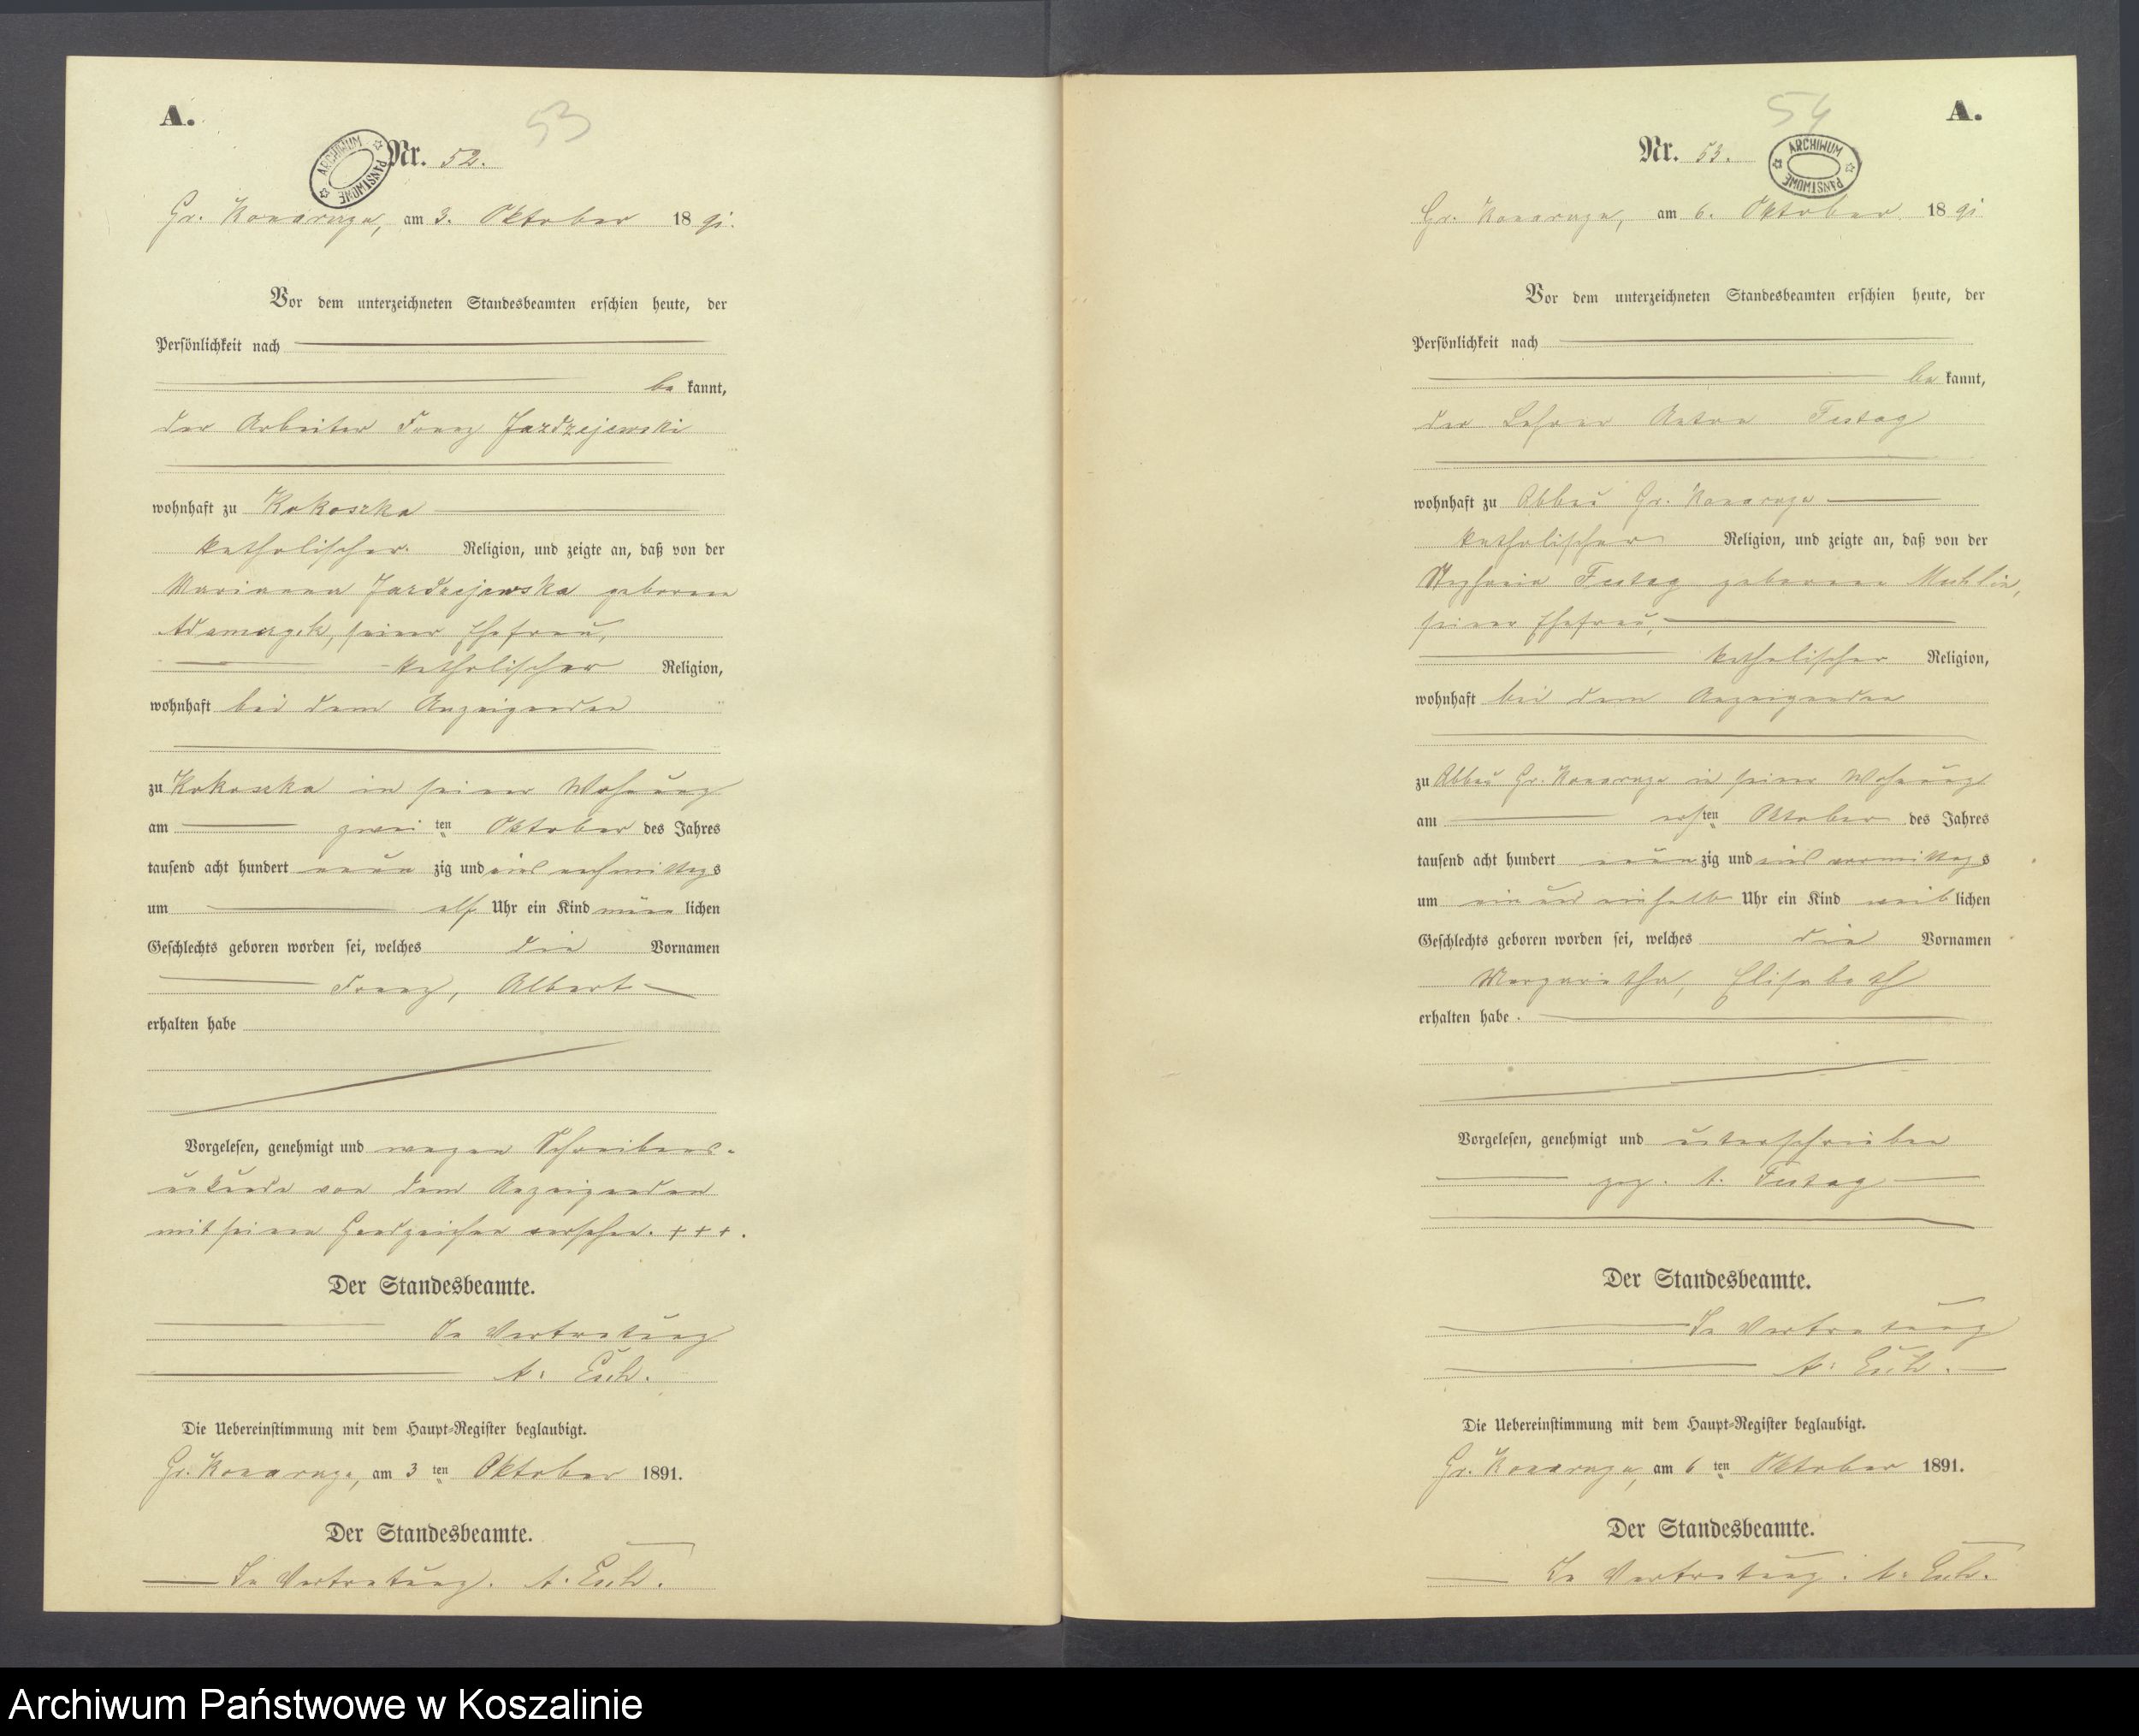 A.
53
Nr. 52.
ARCHIWUM PAŃSTWOWE
Gr. Konarczyn, am 3. Oktober 1891.
Vor dem unterzeichneten Standesbeamten erschien heute, der
Persönlichkeit nach
be kannt,
der Arbeiter Franz Jazdzejewski
wohnhaft zu Kokoszka
katholischer Religion, und zeigte an, daß von der
Marianna Jazdzejewska geborene
Adamczyk, seiner Ehefrau,
katholischer Religion,
wohnhaft bei dem Anzeigenden
zu Kokoszka in seiner Wohnung
am zwei ten Oktober des Jahres
tausend acht hundert neun zig und eins nachmittags
um elf Uhr ein Kind männ lichen
Geschlechts geboren worden sei, welches die Vornamen
Franz, Albert
erhalten habe
Vorgelesen, genehmigt und wegen Schreibens-
unkunde von dem Anzeigenden
mit seinem Handzeichen versehen. +++.
Der Standesbeamte.
In Vertretung
A.
Die Uebereinstimmung mit dem Haupt-Register beglaubigt.
Gr. Konarczyn, am 3 ten Oktober 1891.
Der Standesbeamte.
In Vertretung. A.
54
A.
Nr. 53.
ARCHIWUM PAŃSTWOWE
Gr. Konarczyn, am 6. Oktober 1891
Vor dem unterzeichneten Standesbeamten erschien heute, der
Persönlichkeit nach
be kannt,
der Lehrer Anton Festag
wohnhaft zu Abbau Gr. Konarczyn
katholischer Religion, und zeigte an, daß von der
Festag geborene
seiner Ehefrau,
katholischer Religion,
wohnhaft bei dem Anzeigenden
zu Abbau Gr. Konarczyn in seiner Wohnung
am ers ten Oktober des Jahres
tausend acht hundert neun zig und eins vormittags
um ein und einhalb Uhr ein Kind weib lichen
Geschlechts geboren worden sei, welches die Vornamen
Margaretha, Elisabeth
erhalten habe.
Vorgelesen, genehmigt und unterschrieben
gez. A. Festag
Der Standesbeamte.
In Vertretung
A.
Die Uebereinstimmung mit dem Haupt-Register beglaubigt.
Gr. Konarczyn, am 6 ten Oktober 1891.
Der Standesbeamte.
In Vertretung. A.
Archiwum Państwowe w Koszalinie